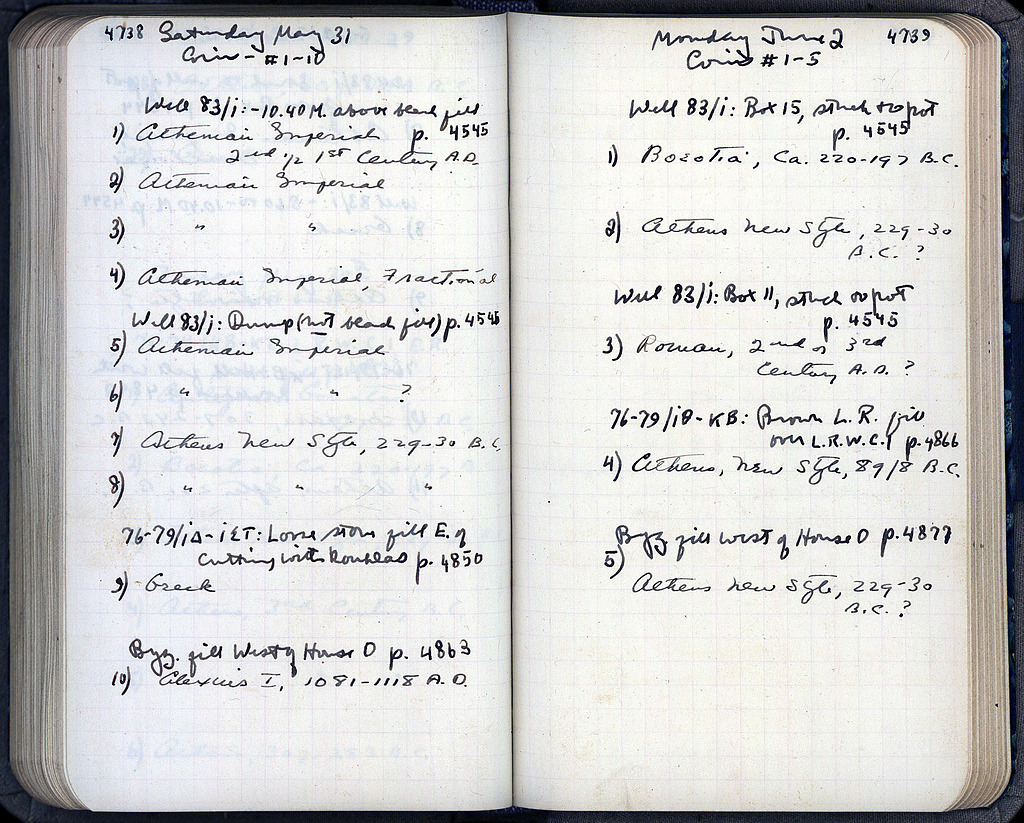 4738 Saturday May 31
Coins - #1-10
Well 83/i: -10.40 M. above bead fill
1) Athenian Imperial p. 4545
2nd 1/2 1st Century A.D.
2) Athenian Imperial
3) " "
4) Athenian Imperial, Fractional
Well 83/i: Dump (not bead fill) p. 4545
5) Athenian Imperial
6) " " ?
7) Athens New Style, 229-30 B.C.
8) " " "
76-79/ιΔ-ιΣΤ: Loose stone fill E. of
cutting with p. 4850
9) Greek
Byz. fill West of House O p. 4863
10) Alexius I, 1081-1118 A.D.
Monday June 2 4739
Coins #1-5
Well 83/i: Box 15, stuck to pot
p. 4545
1) Boeotia, Ca. 220-197 B.C.
2) Athens New Style, 229-30
B.C. ?
Well 83/i: Box 11, stuck to pot
p. 4545
3) Roman, 2nd or 3rd
Century A.D. ?
76-79/ιθ-ΚΒ: Brown L.R. fill
over L.R.W.C.1 p. 4866
4) Athens, New Style, 89/8 B.C.
Byz fill West of House O p. 4877
5)
Athens New Style, 229-30
B.C. ?